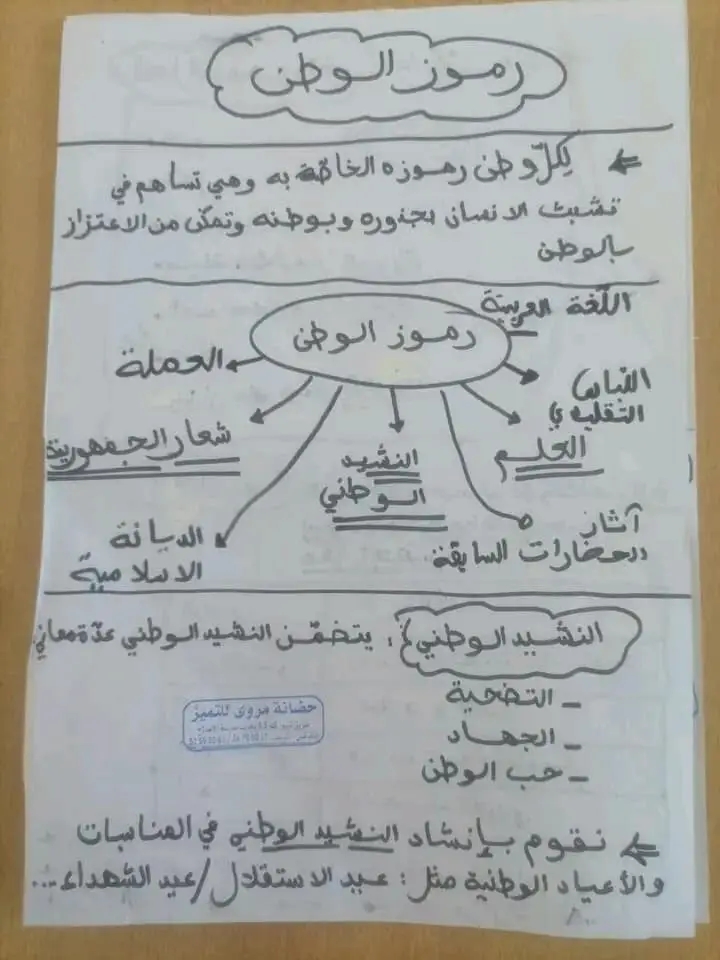 رموز الوطن
⇐ لكلّ وطن رموزه الخاصّة به وهي تساهم في
تشبث الانسان بجذوره وبوطنه وتمكن من الاعتزاز
بالوطن
رموز الوطن
اللّغة العربيّة
اللباس
التقليدي
العلم
آثار
الحضارات السابقة
النشيد
الوطني
العملة
شعار الجمهورية
الديانة
الاسلامية
النشيد الوطني: يتضمّن النشيد الوطني عدّة معاني
- التضحية
- الجهاد
- حب الوطن
حضانة مروى للتميز
⇐ نقوم بإنشاد النشيد الوطني في المناسبات
والأعياد الوطنية مثل: عيد الاستقلال/عيد الشهداء...